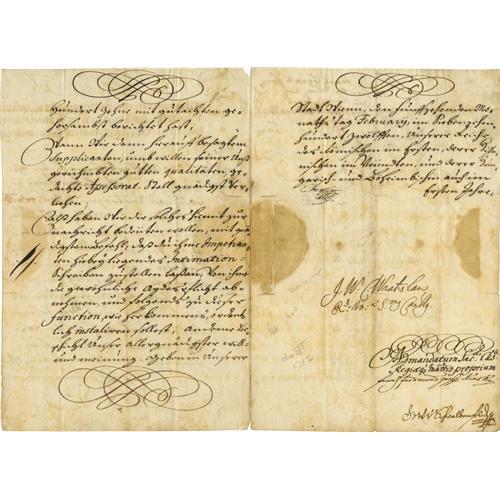 Hundert Zehne mit gutachten ge-
horsambst berichtet hast;
Wann Wir dann hierauf besagtem
Supplicanten, umb willen seiner Uns
gerühmbten gutten qualitäten, ge-
dachte Assessorat-Stell gnädigst ver-
liehen;
Als haben Wir dir solches hiemit zur
Nachricht bedeuten wollen, mit gnä-
digstem befehl, daß du ihme Impetran-
ten hiebey liegendes Intimation-
Schreiben zustellen lassen, Von ihme
die gewöhnliche Aydes-Pflicht ab-
nehmen, und folgends zu dieser
Function, wie herkommens, ordent-
lich installiren sollest; Andeme be-
schicht Unser Allergnädigster will
und meinung. Geben in Unserer
Stadt Wienn, den funffzehenden Mo-
naths tag February, im Siebenzehen
hundert Zwölfften, Unserer Reiche
des Römischen im Ersten, derer Hi-
spanischen im Neundten, und derer Hun-
garisch und Böheimbischen auch im
Ersten Jahre.
Carl VI
1712
Ad Mandatum Sac. Cæs.
Regiæq Mattis proprium